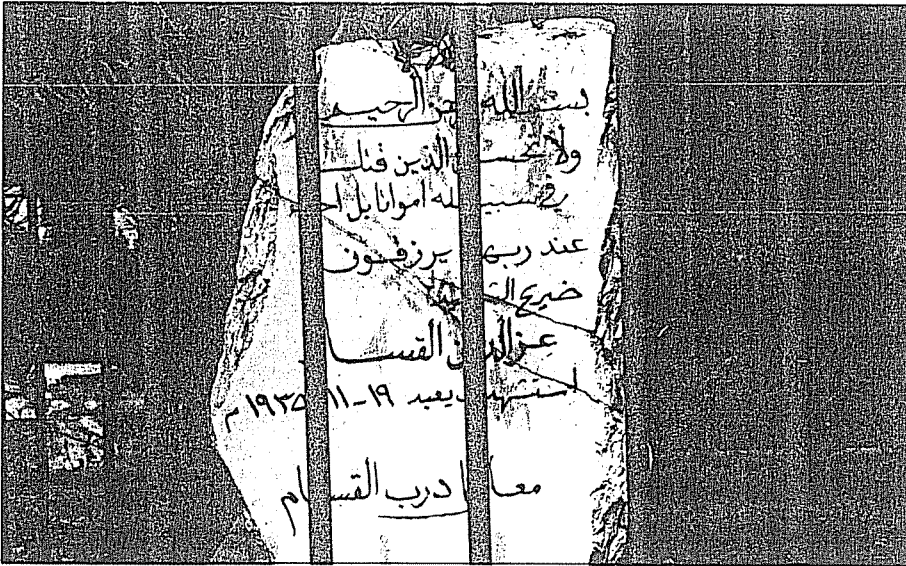 بسم الله الرحمن الرحيم
ولا تحسبن الذين قتلوا
في سبيل الله امواتا بل احياء
عند ربهم يرزقون
ضريح الشهيد
عز الدين القسام
استشهد يعبد ١٩-١١-١٩٣٥م
درب القسام